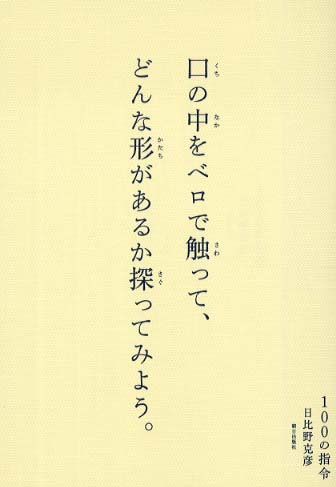 口の中をベロで触って、
どんな形があるか探ってみよう。
くち
なか
さわ
かたち
さぐ
100の指令
日比野克彦
朝日出版社